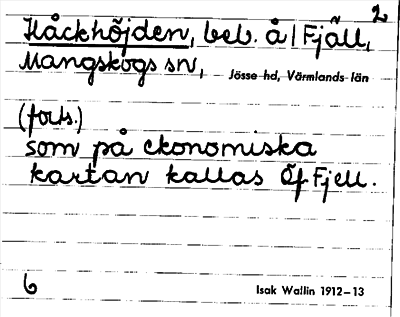 2
Håckhöjden, beb. å / Fjäll,
Mangskogs sn, Jösse hd, Värmlands län
(forts.)
som på ekonomiska
kartan kallas Öf Fjell.
6
Isak Wallin 1912–13